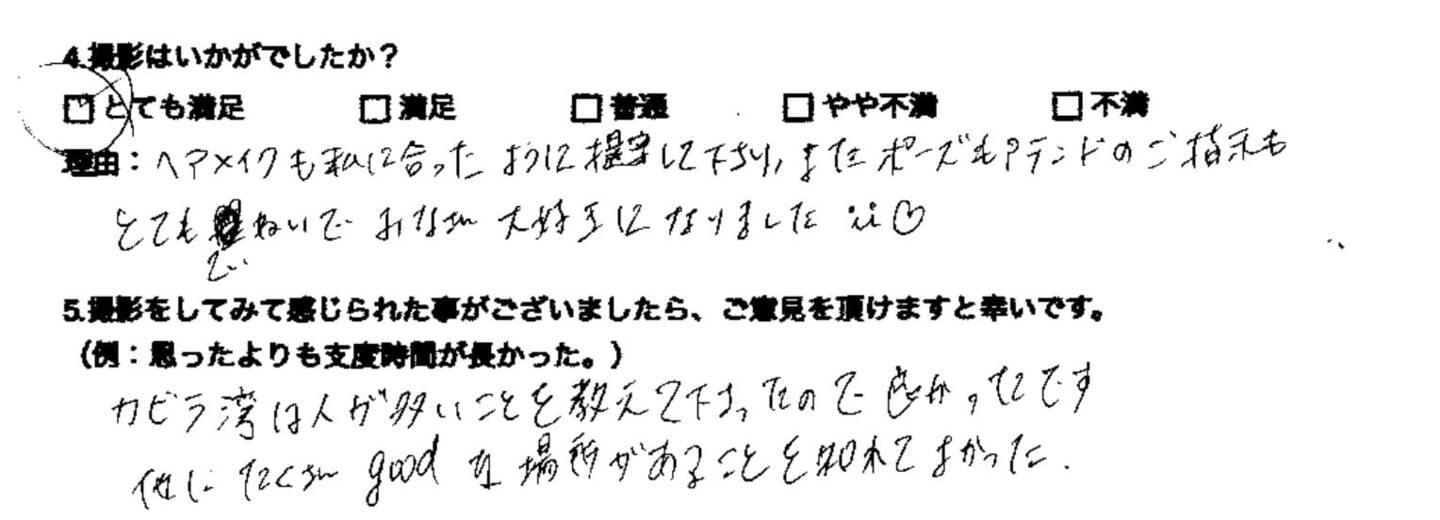 4.撮影はいかがでしたか？
☑とても満足 □満足 □普通 □やや不満 □不満
理由：ヘアメイクも私に合ったように提案して下さり、またポーズもアテンドのご指示も
とてもていねいで みなさん大好きになりました ♡
5.撮影をしてみて感じられた事がございましたら、ご意見を頂けますと幸いです。
（例：思ったよりも支度時間が長かった。）
カビラ湾は人が多いことを教えて下さったので良かったです
他にたくさん good な場所があることを知れてよかった.